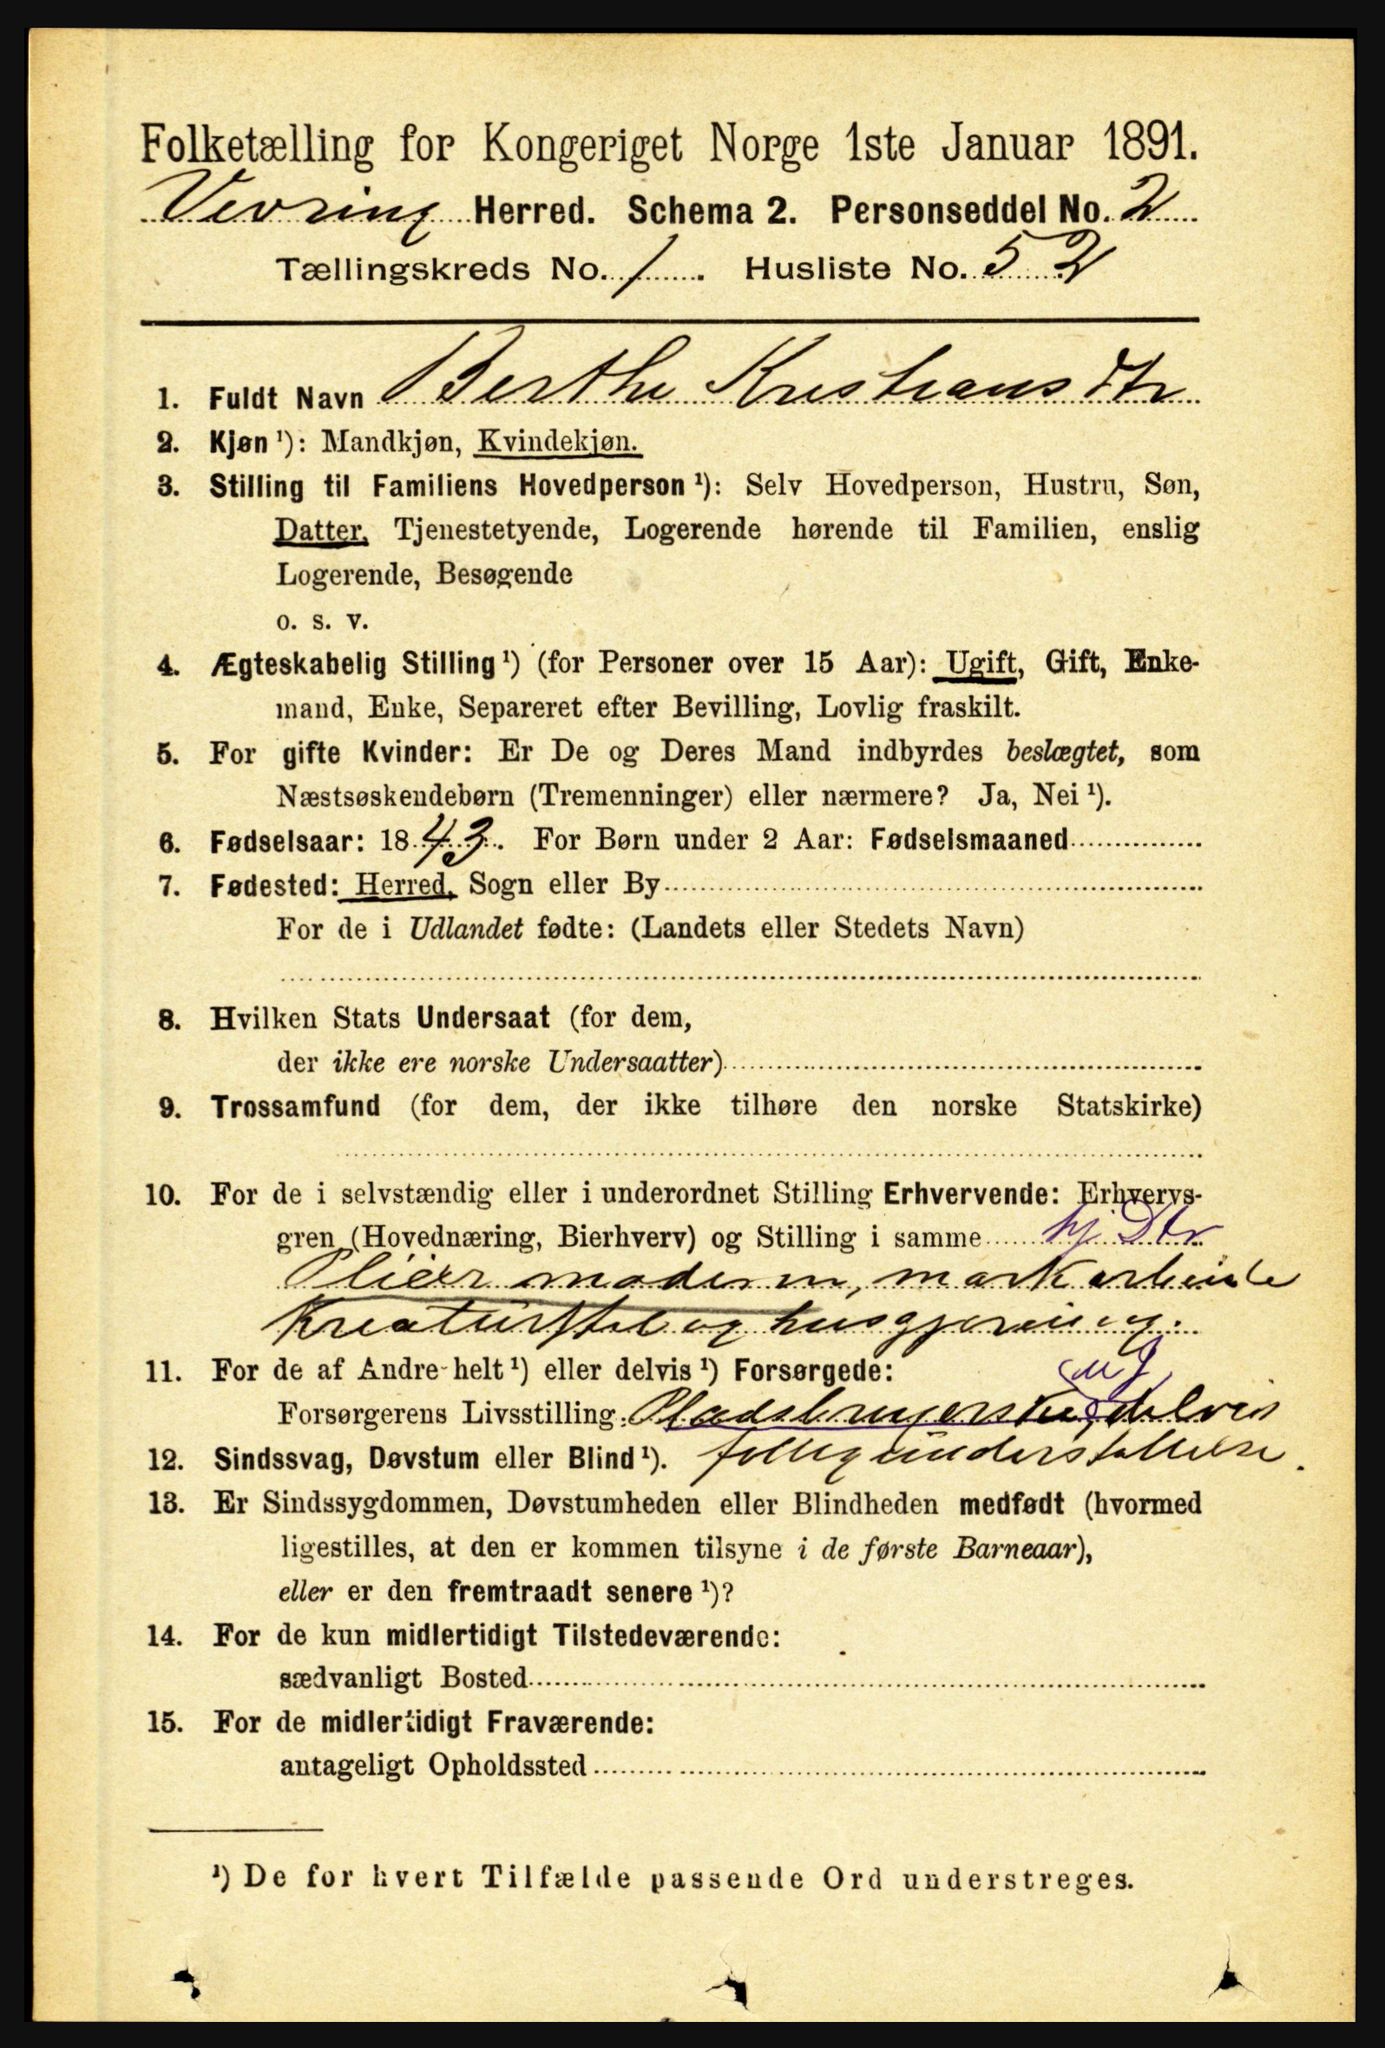 Folketælling for Kongeriget Norge 1ste Januar 1891.
Vevring Herred. Schema 2. Personseddel No. 2
Tællingskreds No. 1. Husliste No. 52
1. Fuldt Navn Berthe Kristiansdtr
2. Kjøn ¹): Mandkjøn, Kvindekjøn.
3. Stilling til Familiens Hovedperson ¹): Selv Hovedperson, Hustru, Søn,
Datter, Tjenestetyende, Logerende hørende til Familien, enslig
Logerende, Besøgende
o. s. v.
4. Ægteskabelig Stilling ¹) (for Personer over 15 Aar): Ugift, Gift, Enke-
mand, Enke, Separeret efter Bevilling, Lovlig fraskilt.
5. For gifte Kvinder: Er De og Deres Mand indbyrdes beslægtet, som
Næstsøskendebørn (Tremenninger) eller nærmere? Ja, Nei ¹).
6. Fødselsaar: 1843. For Børn under 2 Aar: Fødselsmaaned
7. Fødested: Herred, Sogn eller By
For de i Udlandet fødte: (Landets eller Stedets Navn)
8. Hvilken Stats Undersaat (for dem,
der ikke ere norske Undersaatter)
9. Trossamfund (for dem, der ikke tilhøre den norske Statskirke)
10. For de i selvstændig eller i underordnet Stilling Erhvervende: Erhvervs-
gren (Hovednæring, Bierhverv) og Stilling i samme hj. Dtr
Pleier moderen, markarbeide
Kreaturstel og husgjerning.
11. For de af Andre helt ¹) eller delvis ¹) Forsørgede:
Forsørgerens Livsstilling: Pladsbrugerske, delvis
12. Sindssvag, Døvstum eller Blind ¹). fattigunderstøttelse.
13. Er Sindssygdommen, Døvstumheden eller Blindheden medfødt (hvormed
ligestilles, at den er kommen tilsyne i de første Barneaar),
eller er den fremtraadt senere ¹)?
14. For de kun midlertidigt Tilstedeværende:
sædvanligt Bosted
15. For de midlertidigt Fraværende:
antageligt Opholdssted
¹) De for hvert Tilfælde passende Ord understreges.